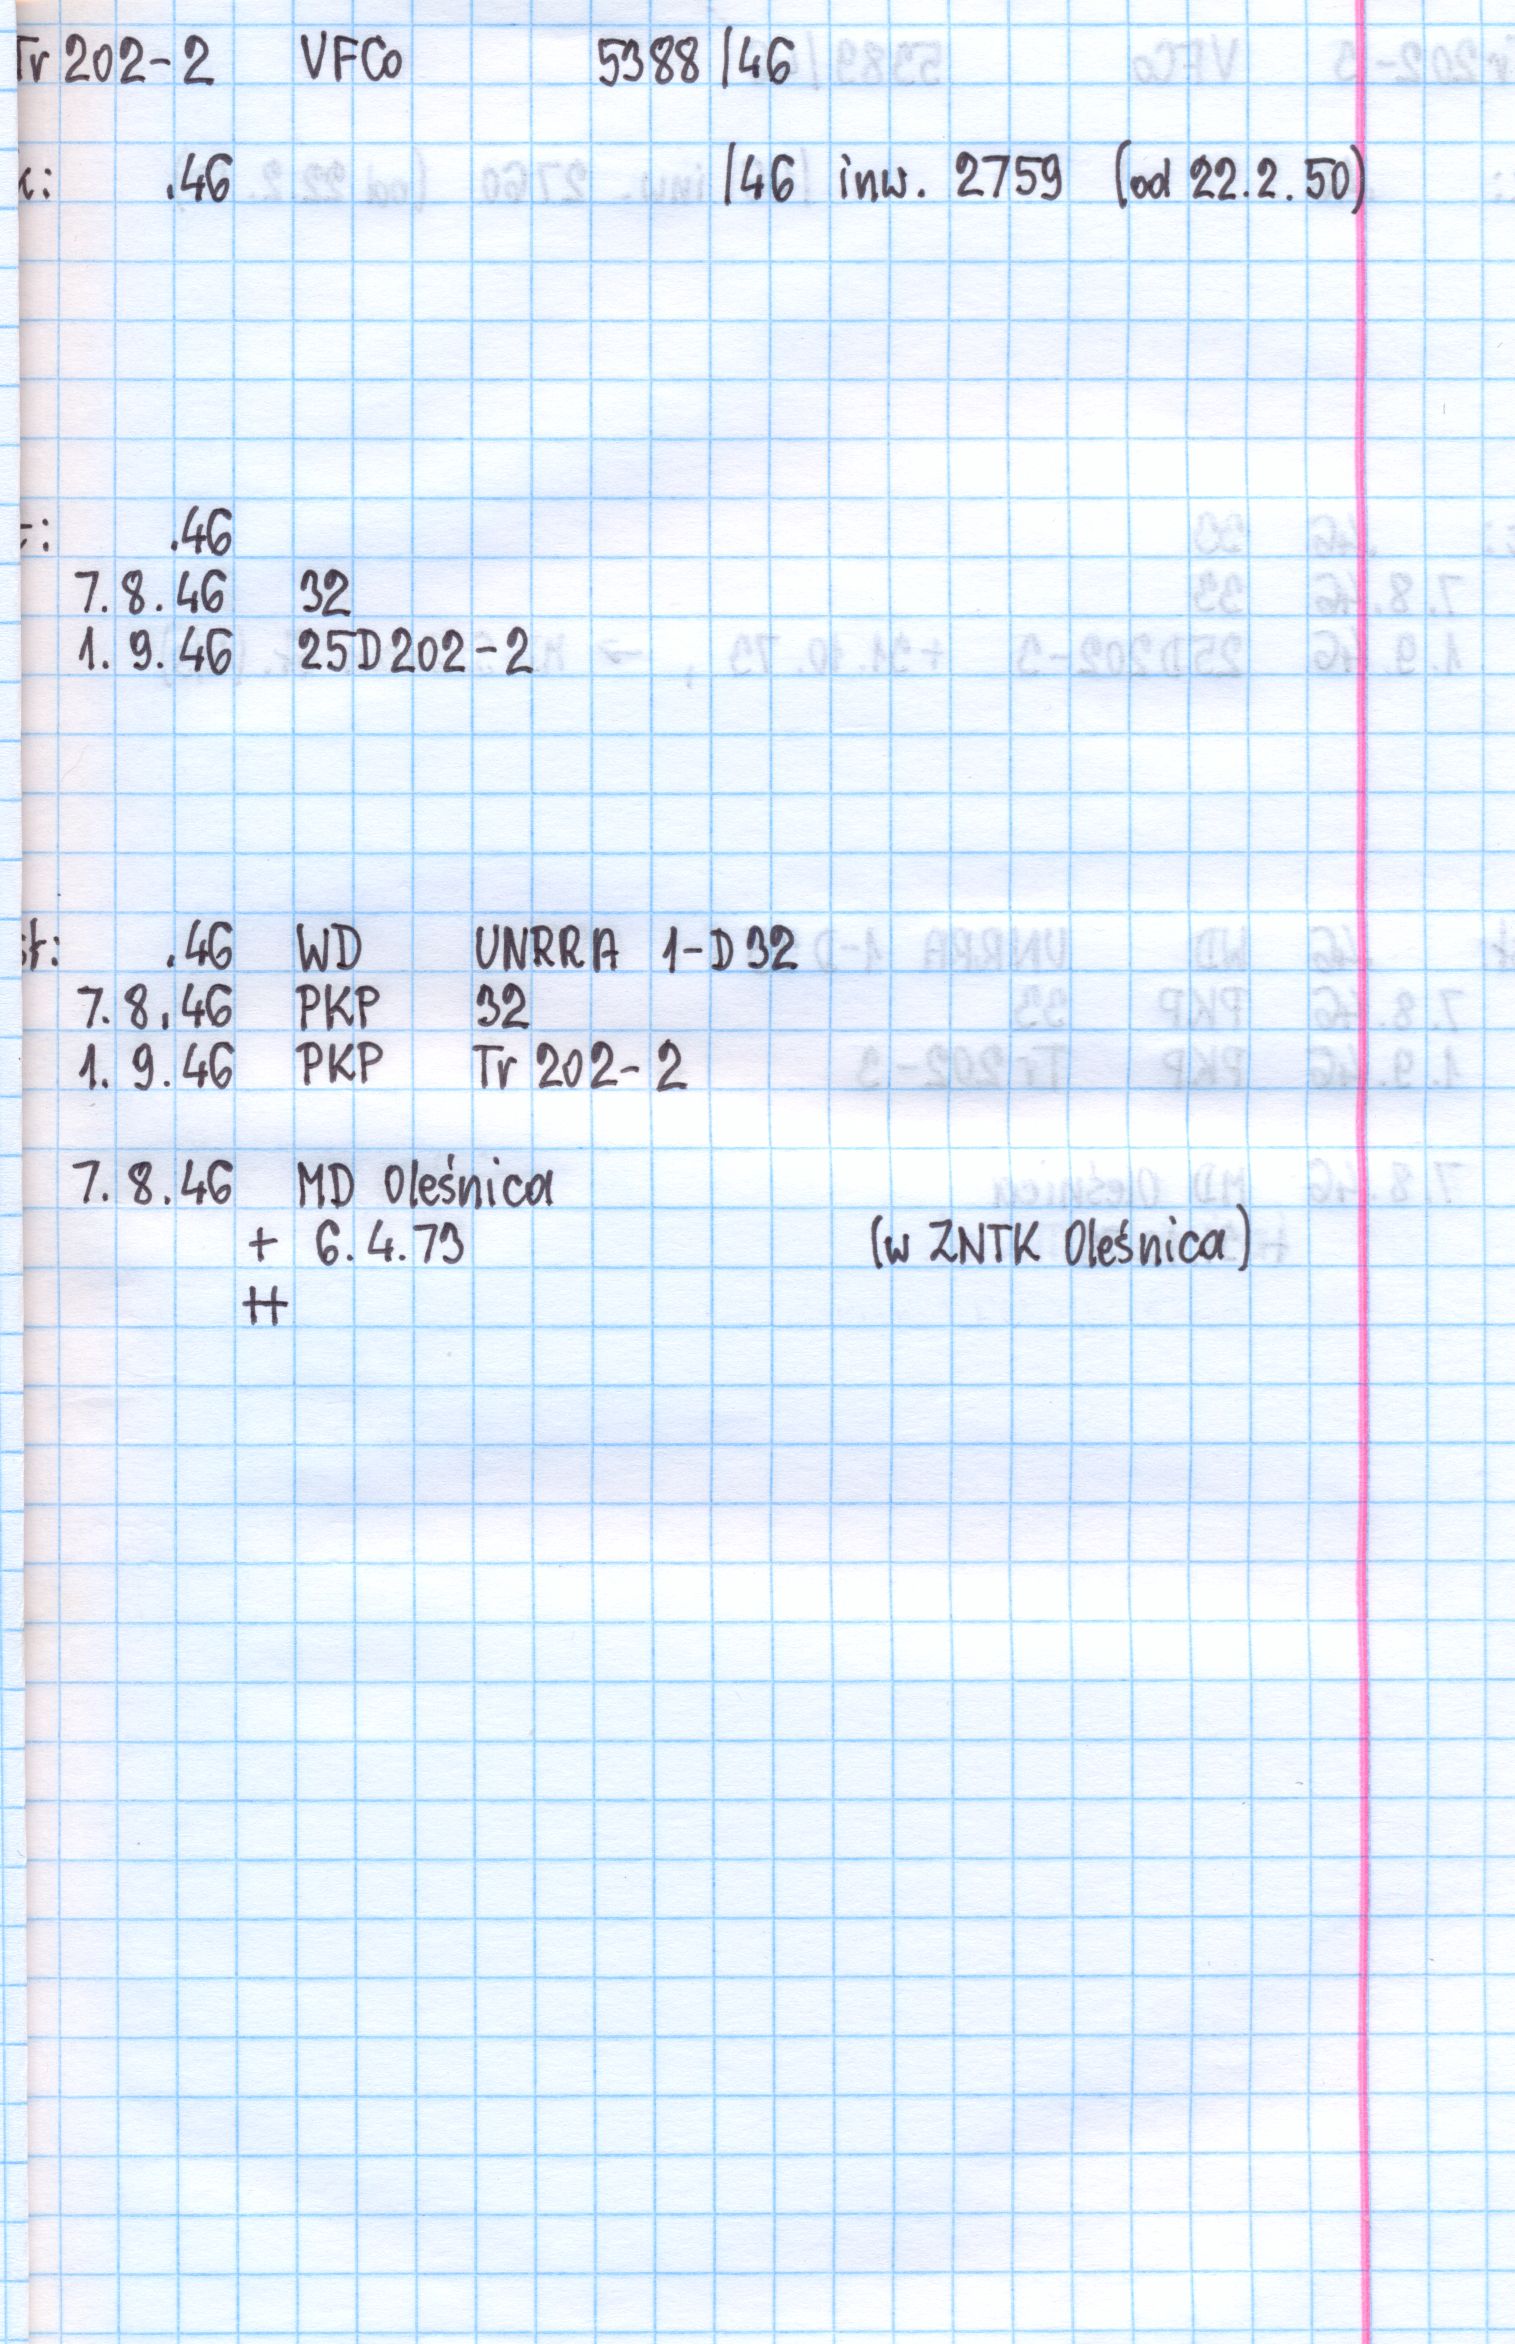 Tr 202-2 VFCo 5388/46
k: .46 /46 inw. 2759 (od 22.2.50)
t: .46
7.8.46 32
1.9.46 25D202-2
st: .46 WD UNRRA 1-D32
7.8.46 PKP 32
1.9.46 PKP Tr 202-2
7.8.46 MD Oleśnica
+ 6.4.73 (w ZNTK Oleśnica)
++